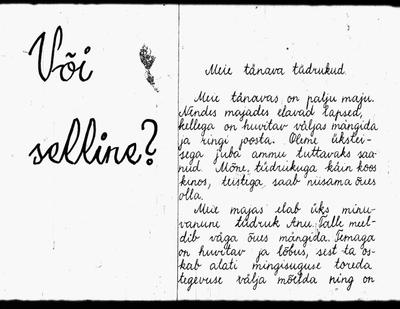 Või
selline?
Meie tänava tüdrukud
Meie tänavas on palju maju.
Nendes majades elavad lapsed,
kellega on huvitav väljas mängida
ja ringi joosta. Oleme ükstei-
sega juba ammu tuttavaks saa-
nud. Mõne tüdrukuga käin koos
kinos, teistega saab niisama õues
olla.
Meie majas elab üks minu-
vanune tüdruk Anu. Talle meel-
dib väga õues mängida. Temaga
on huvitav ja lõbus, sest ta os-
kab alati mingisuguse toreda
tegevuse välja mõelda ning on